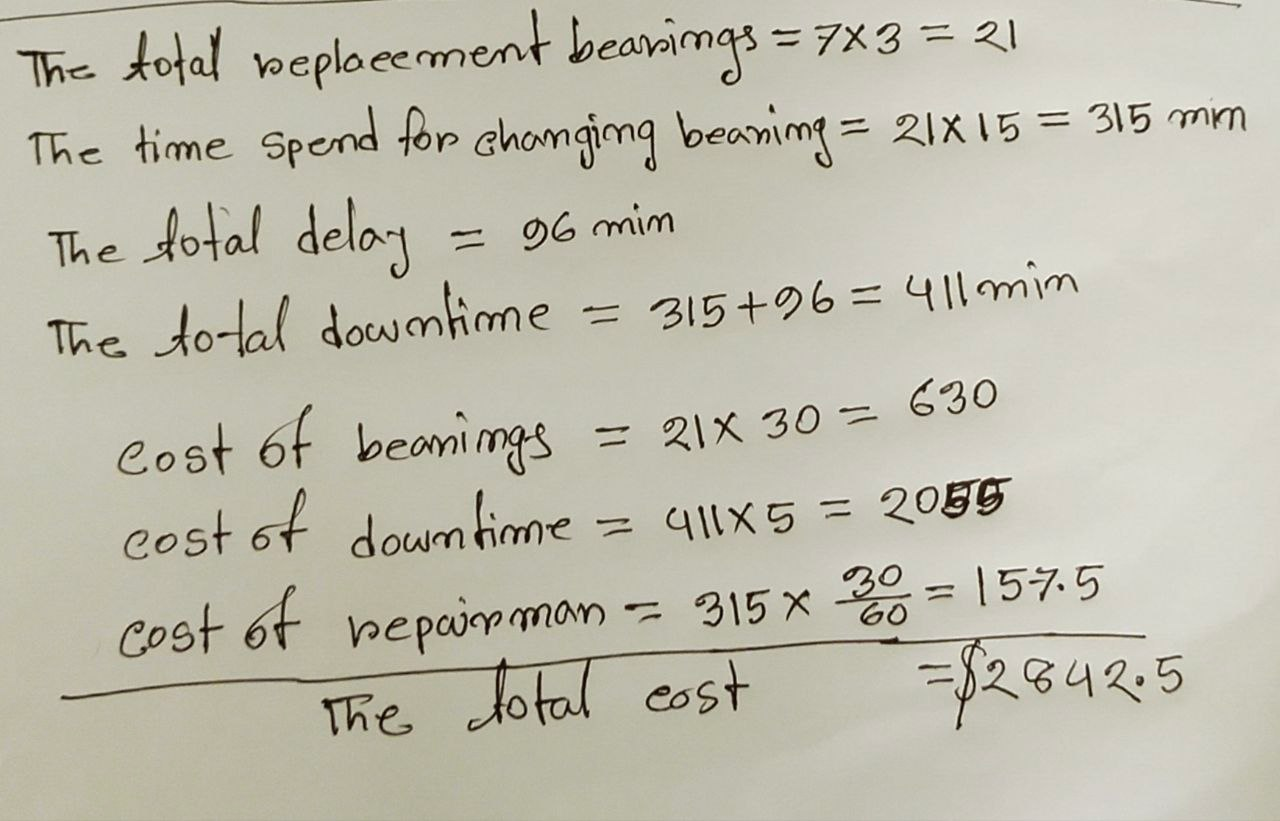 The total replacement bearings = 7×3 = 21
The time spend for changing bearing = 21×15 = 315 min
The total delay = 96 min
The total downtime = 315+96 = 411 min
cost of bearings = 21×30 = 630
cost of downtime = 411×5 = 2055
cost of repairman = 315 × 30/60 = 157.5
The total cost = $2842.5